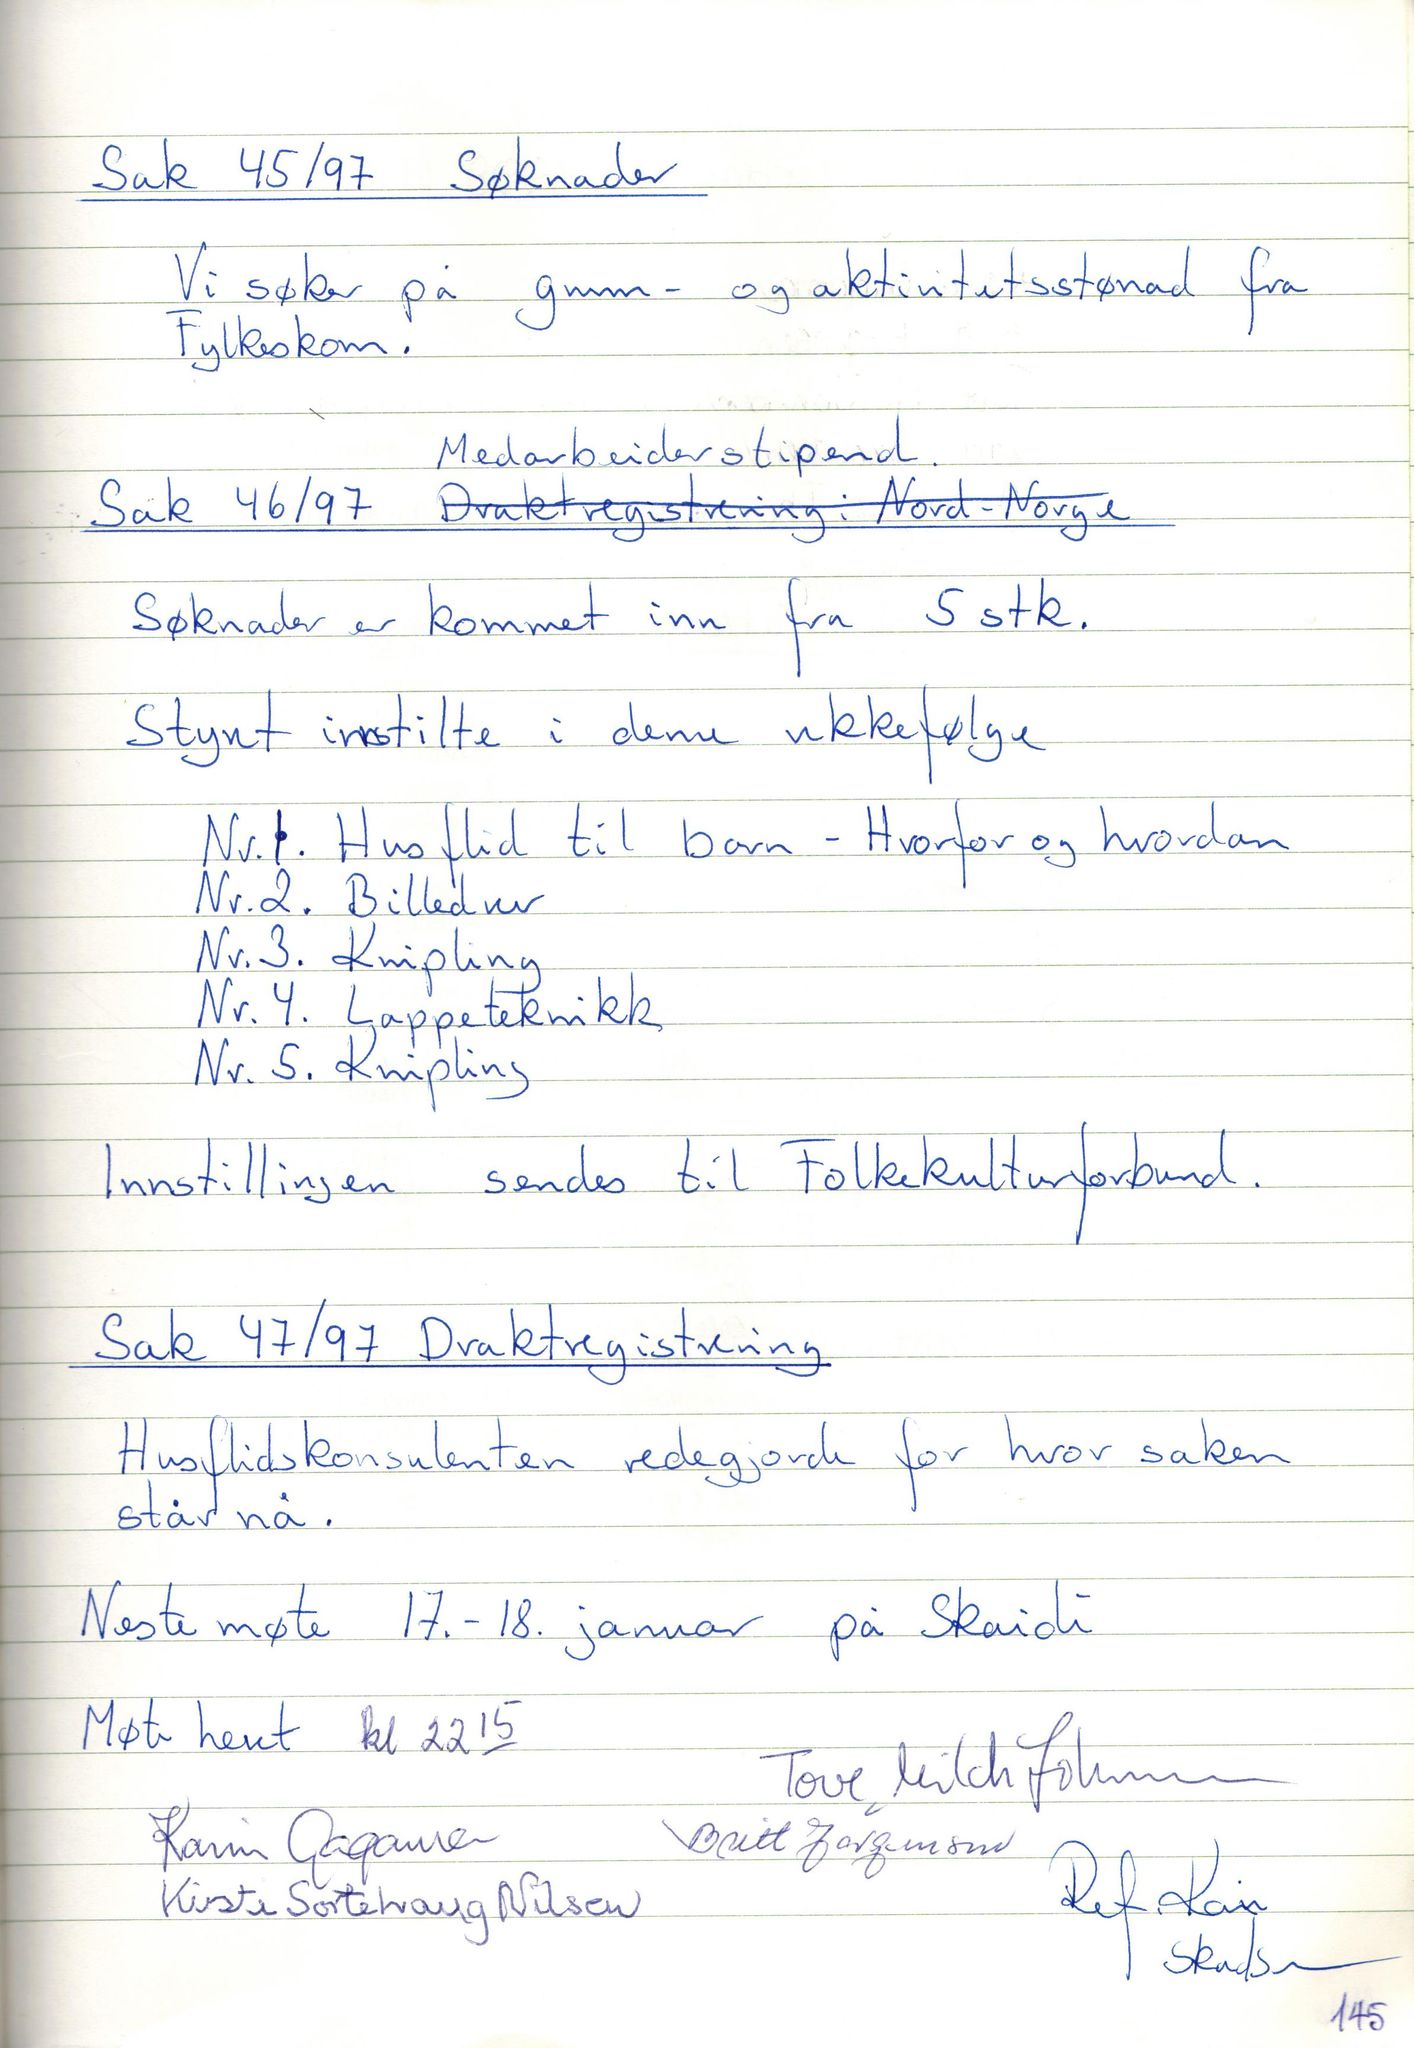 Sak 45/97 Søknader
Vi søker på grunn- og aktivitetsstønad fra
Fylkeskom.
Medarbeiderstipend.
Sak 46/97 Draktregistrering i Nord-Norge
Søknader er kommet inn fra 5 stk.
Styret innstilte i denne rekkefølge
Nr.1. Husflid til barn - Hvorfor og hvordan
Nr.2. Billedvev
Nr.3. Knipling
Nr.4. Lappeteknikk
Nr.5. Knipling
Innstillingen sendes til Folkekulturforbund.
Sak 47/97 Draktregistrering
Husflidskonsulenten redegjorde for hvor saken
står nå.
Neste møte 17.-18. januar på Skaidi
Møte hevet kl 22 15
Tove
Karin Britt
Kirsti Sortehaug Nilsen Ref. Kari
145